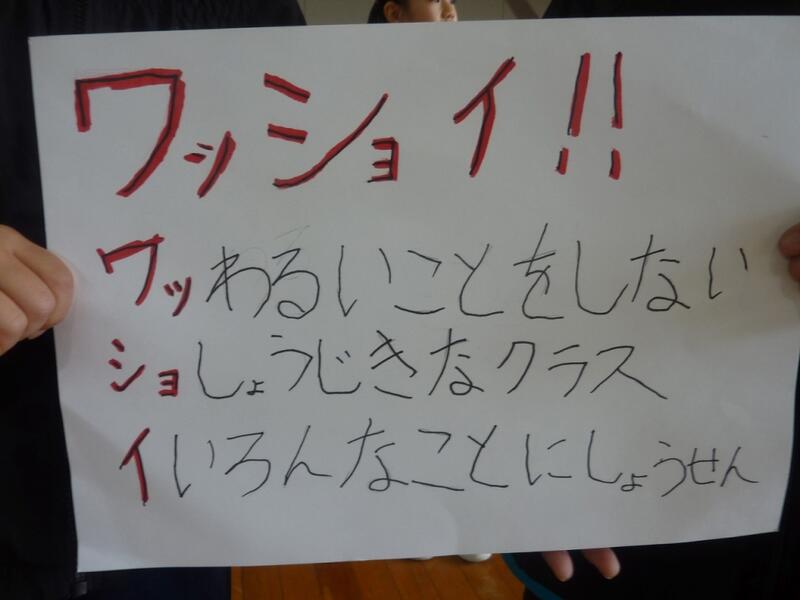 ワッショイ!!
ワッわるいことをしない
ショしょうじきなクラス
イいろんなことにしょうせん